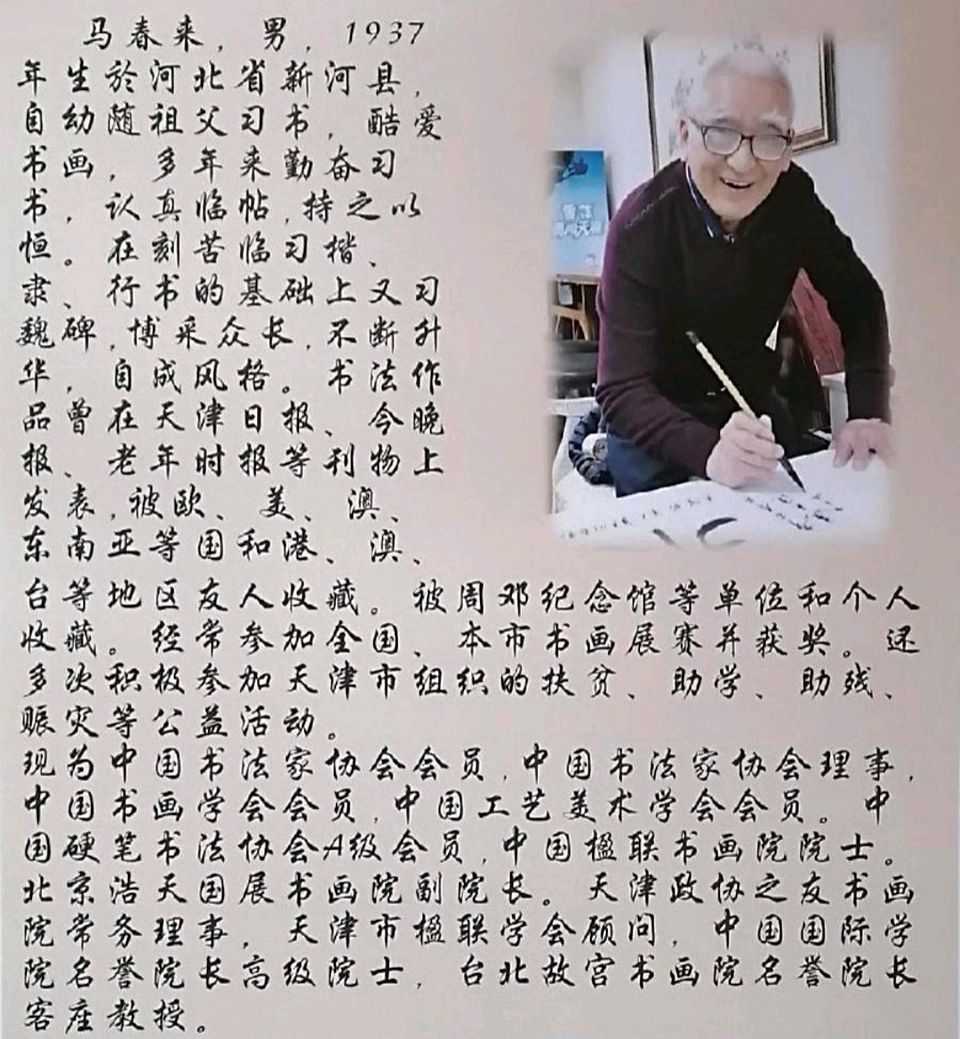 马春来，男，1937
年生於河北省新河县，
自幼随祖父习书，酷爱
书画，多年来勤奋习
书，认真临帖，持之以
恒。在刻苦临习楷、
隶、行书的基础上又习
魏碑，博采众长，不断升
华，自成风格。书法作
品曾在天津日报、今晚
报、老年时报等刊物上
发表，被欧、美、澳、
东南亚等国和港、澳、
台等地区友人收藏。被周邓纪念馆等单位和个人
收藏。经常参加全国、本市书画展赛并获奖。还
多次积极参加天津市组织的扶贫、助学、助残、
赈灾等公益活动。
现为中国书法家协会会员，中国书法家协会理事，
中国书画学会会员，中国工艺美术学会会员。中
国硬笔书法协会A级会员，中国楹联书画院院士。
北京浩天国展书画院副院长。天津政协之友书画
院常务理事，天津市楹联学会顾问，中国国际学
院名誉院长高级院士，台北故宫书画院名誉院长
客座教授。